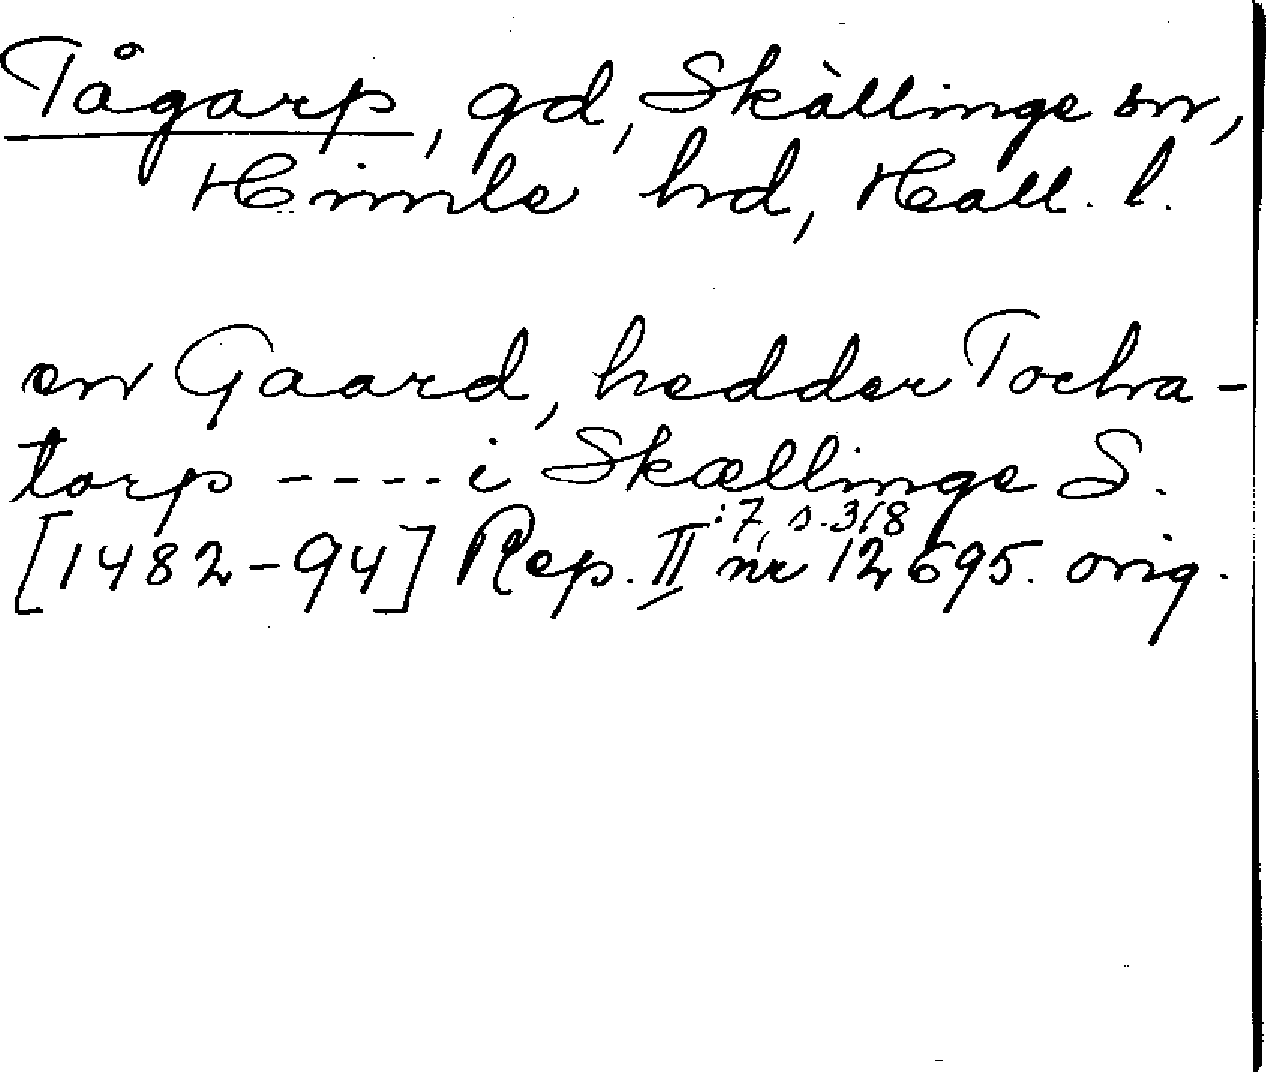 Tågarp, gd, Skällinge sn,
Himle hd, Hall. l.
en Gaard, hedder Tochra-
torp ---- i Skællinge S.
[1482-94] Rep. II :7, s. 318 nr 12695. orig.